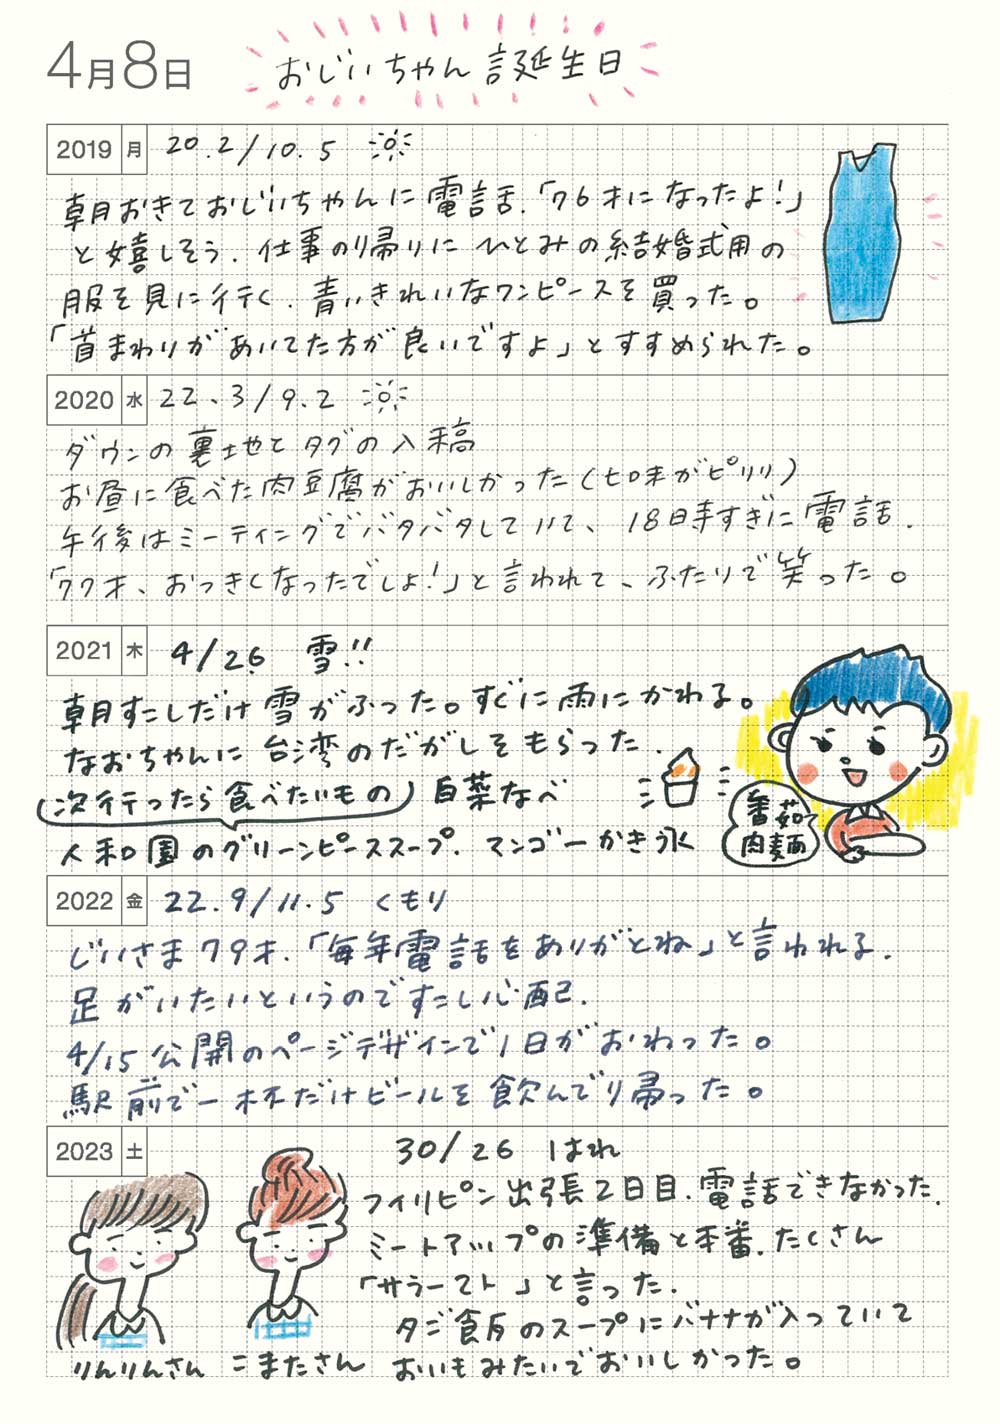 4月8日 おじいちゃん誕生日
2019 月 20.2/10.5
朝おきておじいちゃんに電話.「76才になったよ!」
と嬉しそう.仕事の帰りにひとみの結婚式用の
服を見に行く.青いきれいなワンピースを買った。
「首まわりがあいてた方が良いですよ」とすすめられた。
2020 水 22.3/9.2
ダウンの裏地とタグの入稿
お昼に食べた肉豆腐がおいしかった(七味がピリリ)
午後はミーティングでバタバタしていて、18時すぎに電話.
「77才、おっきくなったでしょ!」と言われて、ふたりで笑った。
2021 木 4/26 雪!!
朝すこしだけ雪がふった。すぐに雨にかわる。
なおちゃんに台湾のだがしをもらった.
(次行ったら食べたいもの) 白菜なべ
人和園のグリーンピーススープ.マンゴーかき氷
番茄
肉麺
2022 金 22.9/11.5 くもり
じいさま79才.「毎年電話をありがとね」と言われる.
足がいたいというのですこし心配.
4/15公開のページデザインで1日がおわった。
駅前で一杯だけビールを飲んで帰った。
2023 土 30/26 はれ
フィリピン出張2日目.電話できなかった.
ミートアップの準備と本番.たくさん
「サラーマト」と言った.
夕ご飯のスープにバナナが入っていて
おいもみたいでおいしかった。
りんりんさん こまたさん